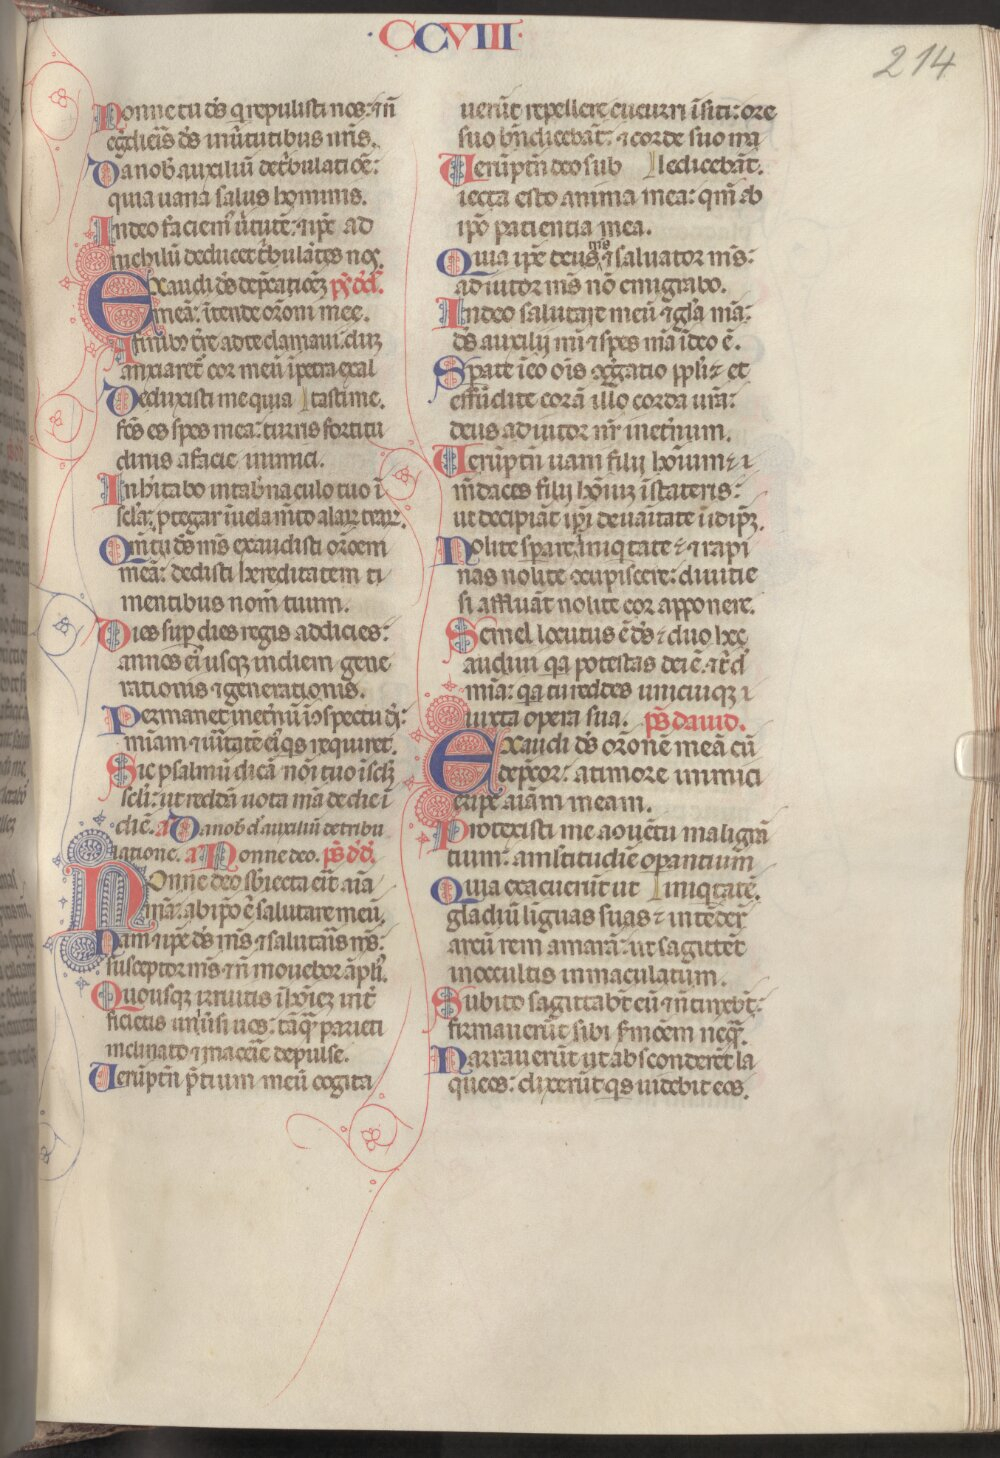 ·CCVIII·
214
Nonne tu ds̄ q̄ repulisti nos: ⁊ nō
egdieris ds̄ in ūtutibus nr̄is.
Da nob̄ auxiliū de tbulatiōe:
quia uana salus hominis.
In deo faciem᷒ ūtutē: ⁊ ip̄e ad
nichilū deducet tbulātes nos.
Exaudi ds̄ dep̄catiōez ps̄ dd̄.
meā: ītende orōni mee.
A finib᷒ tr̄e ad te clamaui: duz
anxiaret᷒ cor meū ī petra exal
Deduxisti me quia tasti me.
fc̄s es spes mea: turris fortitu
dinis a facie inimici.
Inh̄itabo in tab̄naculo tuo ī
scl̄a: ꝓtegar ī uelam̄to alaꝝ tuaꝝ.
Qm̄ tu ds̄ ms̄ exaudisti orōem
meā: dedisti hereditatem ti
mentibus nom̄ tuum.
Dies sup̄ dies regis addicies:
annos ei᷒ usqꝫ in diem gene
rationis ⁊ generationis.
Permanet in et̄nū ī ꝯspectu dī:
mīam ⁊ ūitatē ei᷒ qs requiret.
Sic psalmū dicā nōi tuo ī sclꝫ
scl̄i: ut reddā uota mā de die ī
diē. a Da nob̄ d᷒ auxiliū de tribu
latione. a Nonne deo. ps̄ dd̄.
Nonne deo sb̄iecta erit aīa
mā: ab ip̄o ē salutare meū.
Nam ⁊ ip̄e ds̄ ms̄ ⁊ salutaīs ms̄:
susceptor ms̄ nō mouebor āpli᷒.
Quousqꝫ irruitis ī hoīez int̄
ficietis uniūsi uos: tāqꝫ parieti
inclinato ⁊ macerie depulse.
Uerūptn̄ p̄tium meū cogita
uerūt repellere cucurri ī siti: ore
suo bn̄dicebāt: ⁊ corde suo ma
Uerūptn̄ deo sub ledicebāt.
iecta esto anima mea: qm̄ ab
ip̄o patientia mea.
Quia ip̄e deus ms̄ ⁊ saluator ms̄:
adiutor ms̄ nō emigrabo.
In deo salutare meū ⁊ gl̄a mā:
ds̄ auxilij mī ⁊ spes mā ī deo ē.
Sperate ī eo oīs ꝯgregatio ppl̄i ⁊ et
effūdite corā illo corda ur̄a:
deus adiutor nr̄ in et̄num.
Uerūptn̄ uani filij hoīum ⁊ ı
mēdaces filij hoīuꝫ ī stateris:
ut decipiāt ip̄i de uanitate ī idip̄ꝫ.
Nolite sperare ī iniqtate ⁊ ⁊ rapi
nas nolite ꝯcupiscere: diuitie
si affluāt nolite cor apponere.
Semel locutus ē ds̄ ⁊ duo hec
audiui qa potestas dei ē: ⁊ t᷒ d᷒
mīa: qa tu reddes unicuiqꝫ ı
iuxta opera sua. ps̄ dauid.
Exaudi ds̄ orōne meā cū
dep̄cor: a timore inimici
eripe aīam meam.
Protexisti me a ꝯuētu maligna
tium: a mltitudīe opantium
Quia exacuerūt ut iniqtatē.
gladiū linguas suas ⁊ intēder
arcū rem amarā: ut sagittēt
in occultis inmaculatum.
Subito sagittabt eū ⁊ nō timebt:
firmauerūt sibi s̄moem neqꝫ.
Narrauerūt ut absconderēt la
queos: dixerūt qs uidebit eos.